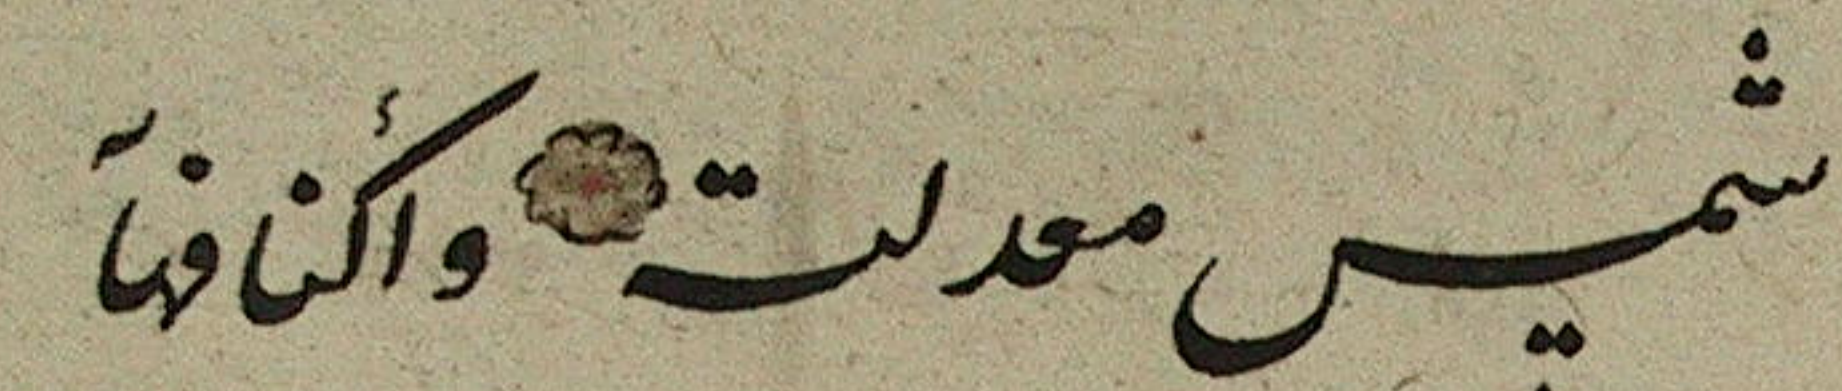 شمس معدلت وأكنافهآ